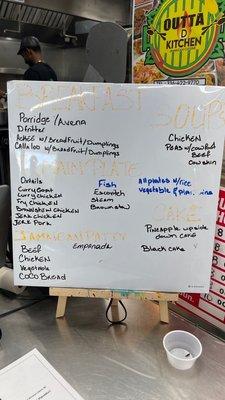 OUTTA
D
KITCHEN
BREAKFAST
Porridge/Avena
D Fritter
Ackee w/BreadFruit/Dumplings
Callaloo w/BreadFruit/Dumplings
SOUPS
Chicken
Peas w/
Beef
Cow skin
MAIN PLATE
Oxtails
Curry Goat
Curry Chicken
Fry Chicken
Brownstew Chicken
Jerk Chicken
Jerk Pork
Fish
Escovitch
Steam
Brownstew
All plates w/rice
Vegetable &
CAKE
Pineapple upside
down cake
Black cake
JAMAICAN PATTY
Beef
Chicken
Vegetable
Coco Bread
Empanada